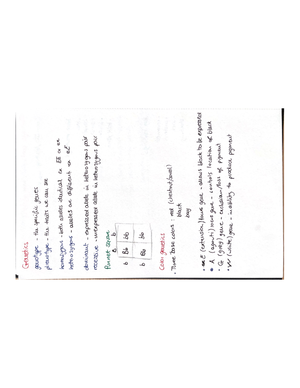 Genetics
genotype - the specific genes
phenotype - the traits we can see
homozygous - both alleles identical ex EE or ee
heterozygous - alleles are different ex Ee
dominant - expressed allele in heterozygous pair
recessive - unexpressed allele in heterozygous pair
Punnet square
B b
b Bb bb
b Bb bb
Coat genetics
• Three base colors: red (chestnut/sorrel)
black
bay
• E (extension) base gene - allows black to be expressed
• A (agouti) base gene - controls location of black
• G (grey) gene - exclusion/loss of pigment
• W (white) gene - inability to produce pigment